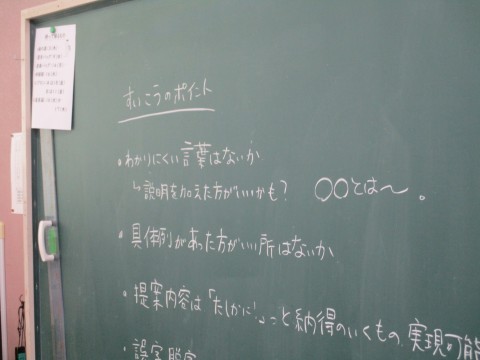 すいこうのポイント
・わかりにくい言葉はないか
↳説明を加えた方がいいかも? 〇〇とは〜。
・具体例があった方がいい所はないか
・提案内容は「たしかに!」と納得のいくもの、実現可能
・誤字脱字